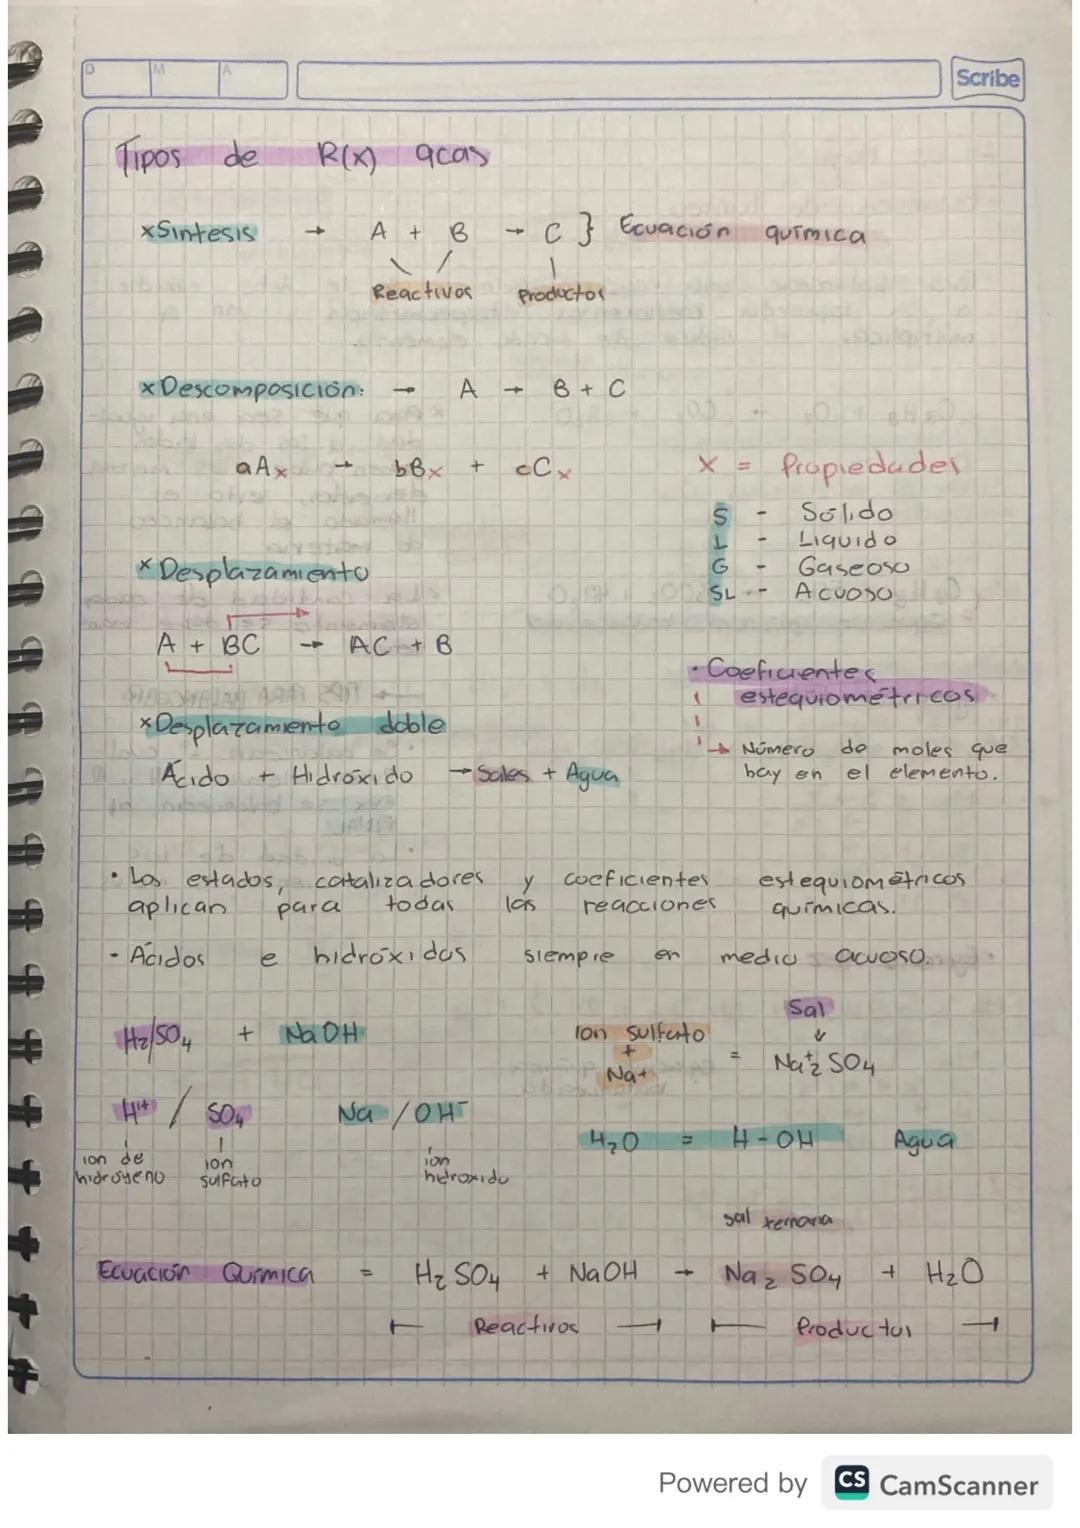 D M A
Scribe
Tipos de R(x) qcas
xSíntesis → A + B → C } Ecuación química
Reactivos Productos
xDescomposición: → A → B + C
aAx → bBx + cCx X = Propiedades
S - Sólido
L - Liquido
G - Gaseoso
SL - Acuoso
x Desplazamiento
A + BC → AC + B
• Coeficientes
estequiométricos
→ Número de moles que
hay en el elemento.
xDesplazamiento doble
Ácido + Hidróxido → Sales + Agua
• Los estados, catalizadores y coeficientes estequiométricos
aplican para todas las reacciones químicas.
- Ácidos e hidróxidos siempre en medio acuoso.
H2/SO4 + NaOH
ion sulfato
+
Na+
=
Sal
Na+2 SO4
H+ / SO4 Na / OH-
ion de hidrogeno
ion sulfato
ion hidroxido
H2O = H-OH Agua
sal ternaria
Ecuación Química = H2 SO4 + NaOH → Na2 SO4 + H2O
Reactivos Productos
Powered by CS CamScanner